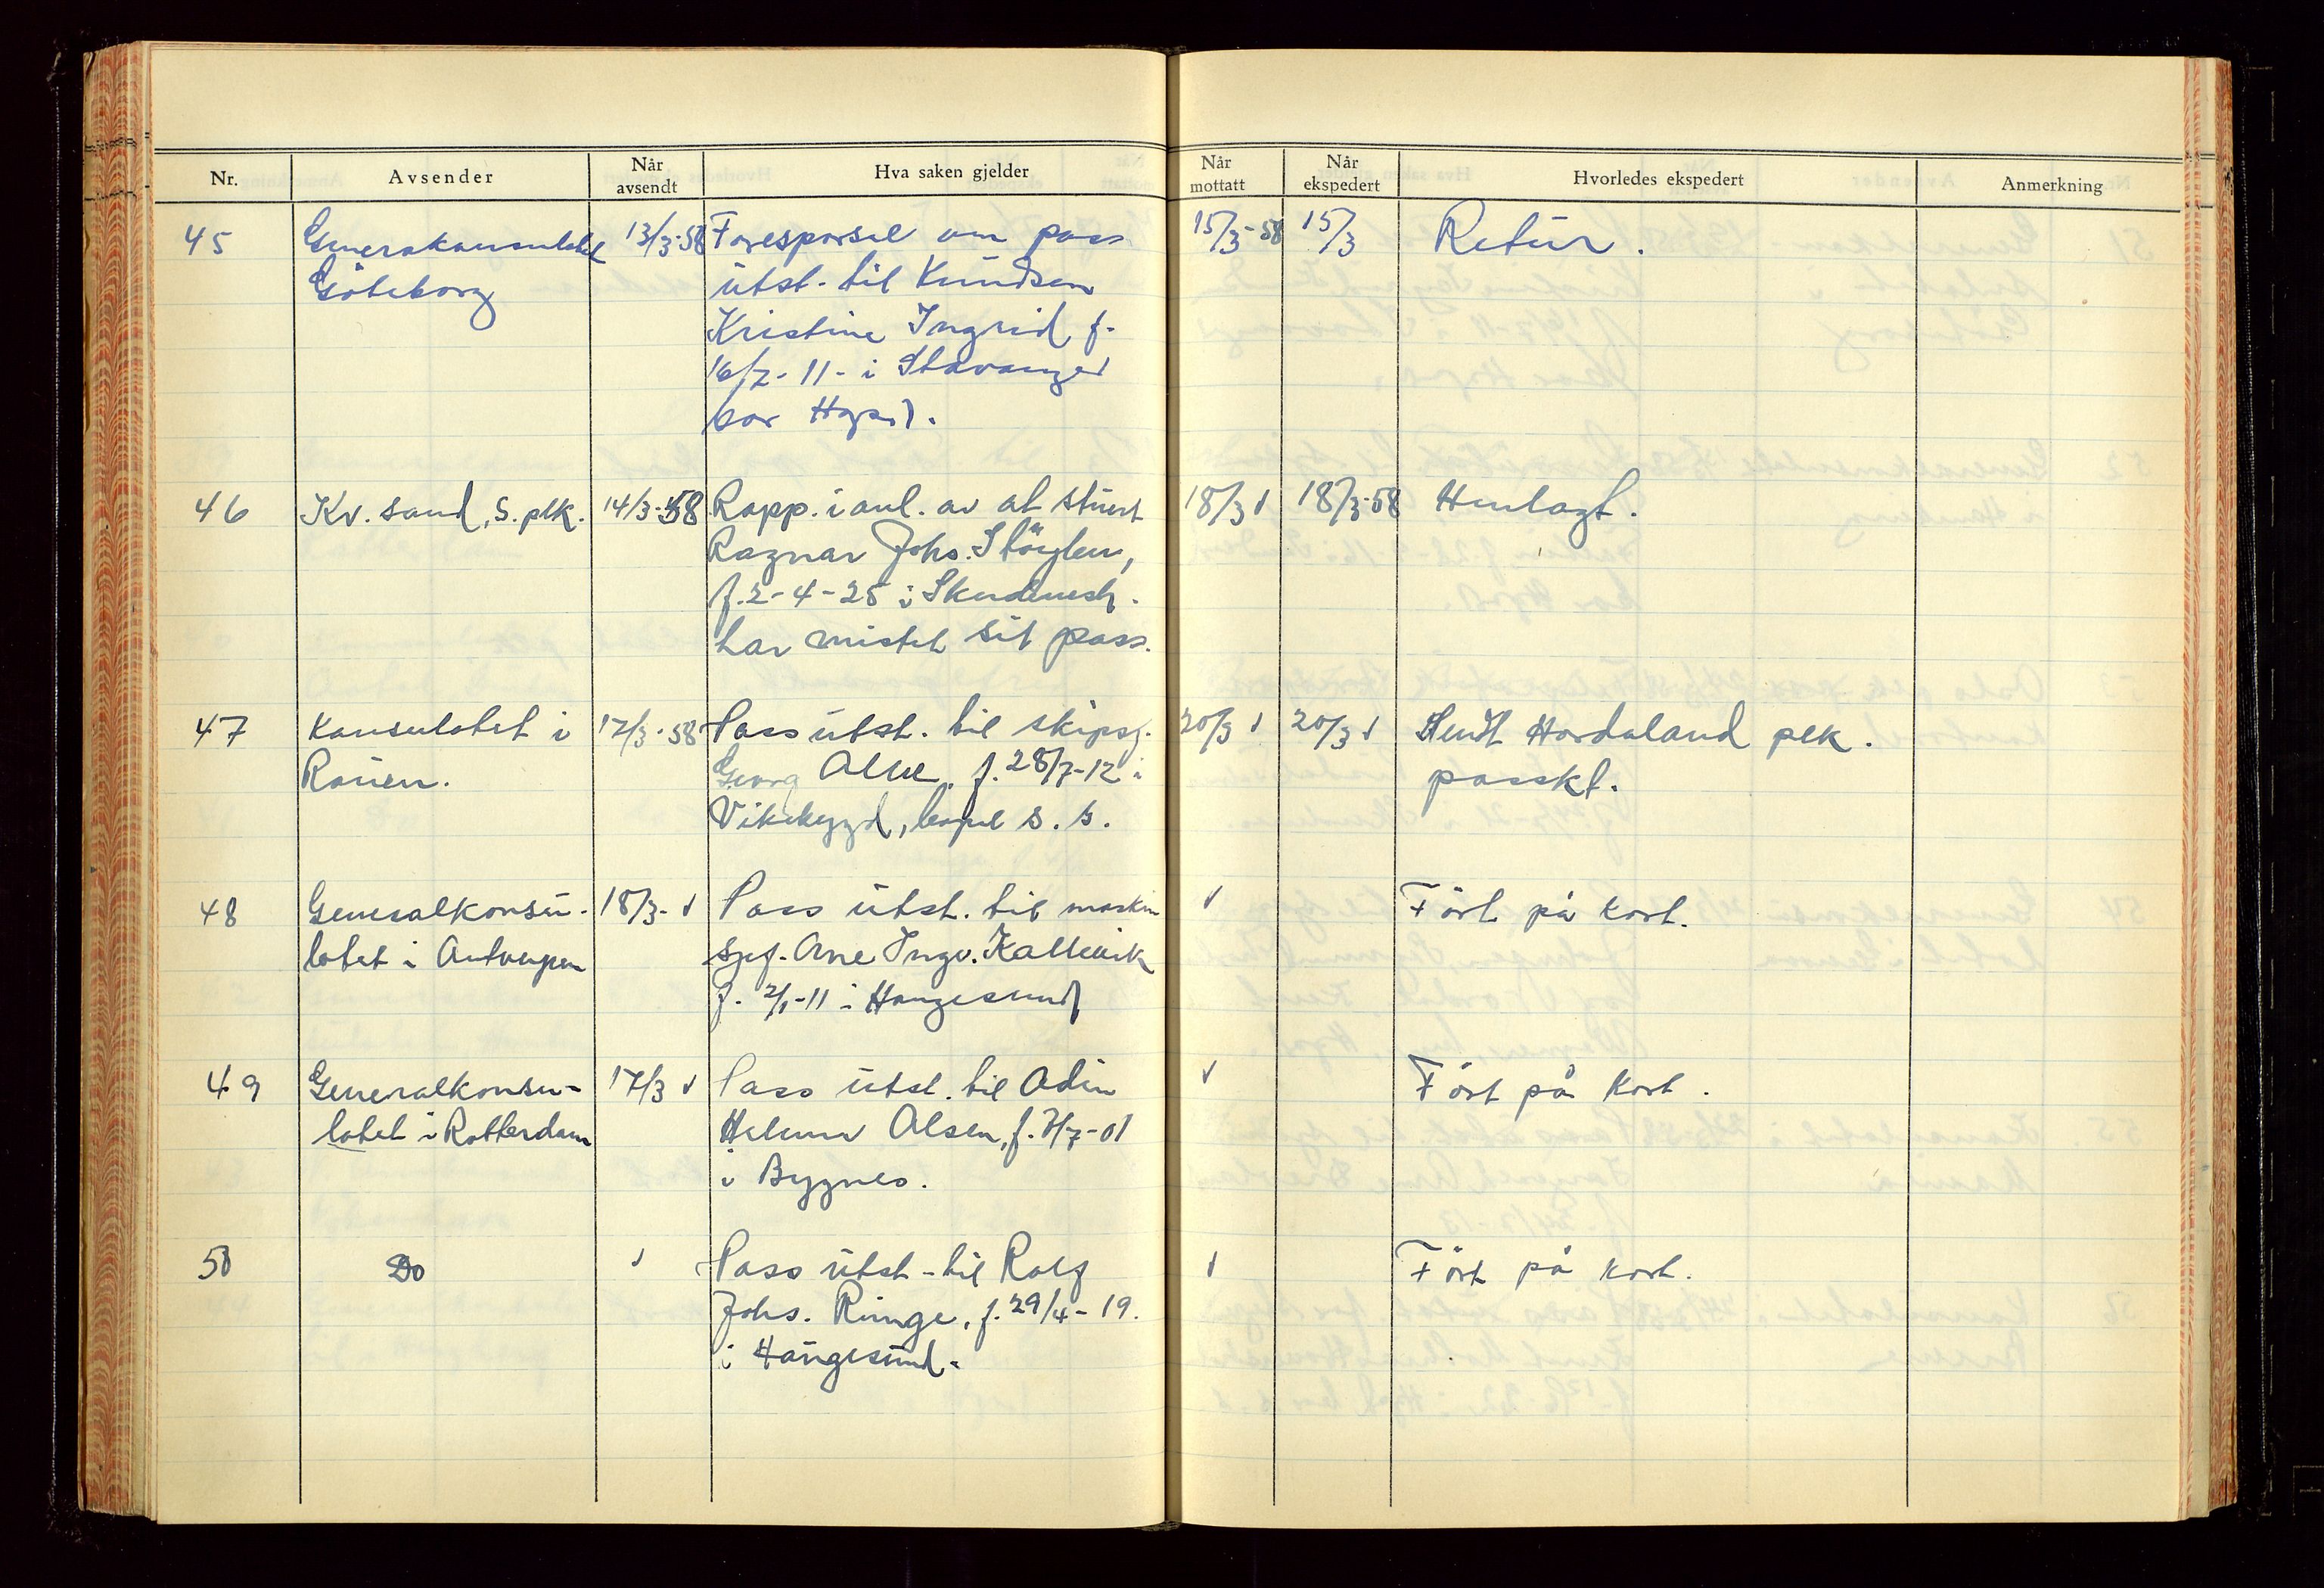 Nr.
Avsender
Når avsendt
Hva saken gjelder
Når mottatt
Når ekspedert
Hvorledes ekspedert
Anmerkning
45
Generakonsulatet
Göteborg
13/3-58
Forespørsel om pass
utst. til Knudsen
Kristine Ingrid f.
16/7-11- i Stavanger
bor Hgsd.
15/3-58
15/3
Retur.
46
Kv. sand, S. plk.
14/3-58
Rapp. i anl. av at stuert
Ragnar Johs. Stöylen,
f. 2-4-25 i Skudenesh.
har mistet sit pass.
18/3 √
18/3-58
Henlagt.
47
Konsulatet i
Rouen.
17/3-58
Pass utst. til skipsf.
Georg Alne, f. 28/7-12 i
Vikebygd, bopel s. s.
20/3 √
20/3 √
Sendt Hordaland plk.
passkt.
48
Generalkonsu-
latet i Antverpen
18/3- √
Pass utst. til maskin
spf. Arne Ingv. Kallevik
f. 2/1-11 i Haugesund
√
Fört på kort.
49
Generalkonsu-
latet i Rotterdam
17/3 √
Pass utst. til Odin
Helmer Olsen, f. 7/7-01
i Bygnes.
√
Fört på kort.
50
Do
√
Pass utst - til Rolf
Johs. Ringe, f. 29/4-19.
i Haugesund.
√
Fört på kort.